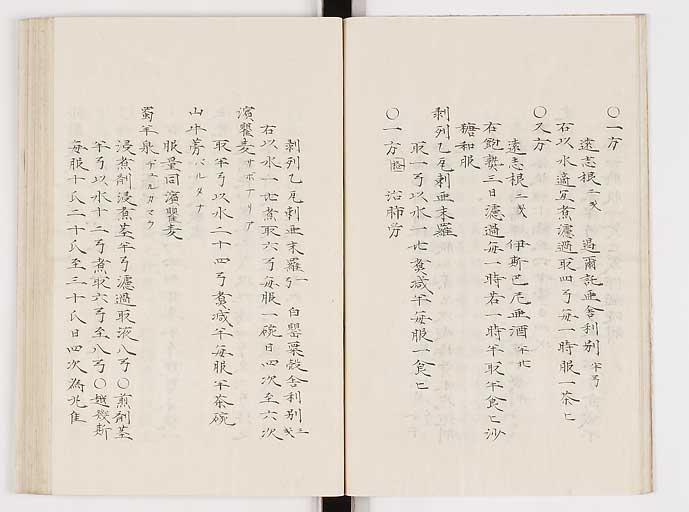 〇一方
遠志根二戔 過爾託亜舎利別半弓
右以水適宜煮濾過取四弓毎一時服一茶匕
〇又方
遠志根三戔 伊斯巴尼亜酒半比
右飽㵸三日濾過毎一時若一時半取半食匕沙
糖和服
剥列乙瓦剌亜末羅
取一弓以水一比煮減半毎服一食匕
〇一方 治肺労
剥列乙瓦剌亜末羅 白罌粟殻舎利別三戔
右以水一比煮取六弓毎服一碗日四次至六次
濱瞿麦サボナリア
取半弓以水二十四弓煮減半毎服半茶碗
山牛蒡バルタナ
服量同濱瞿麦
蜀羊泉ヂュルカマラ
浸煮剤浸煮茎半弓濾過取液八弓〇煎剤茎
半弓以水十二弓煮取六弓至八弓〇越幾斯
毎服十氏二十氏至三十氏日四次為兆隹